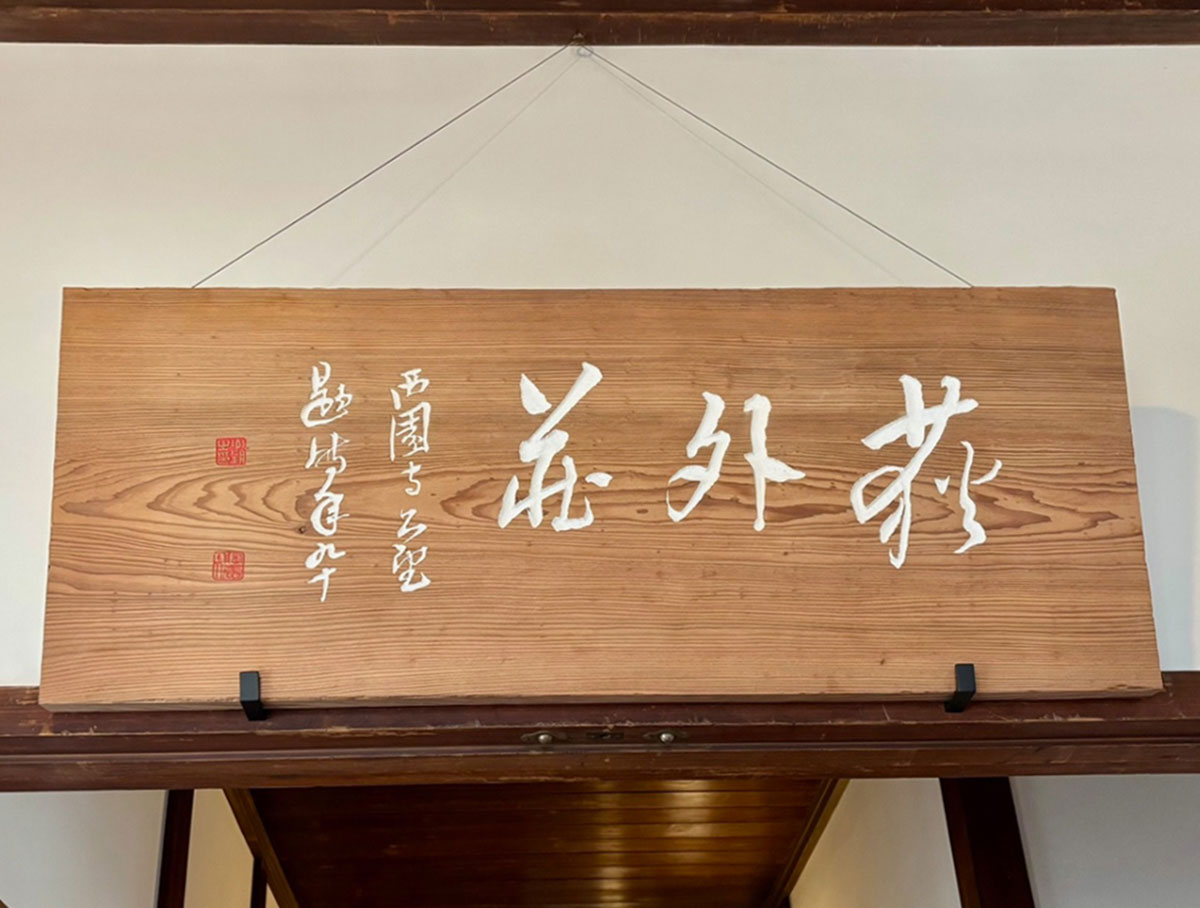 荻外荘
西園寺公望
題時年九十